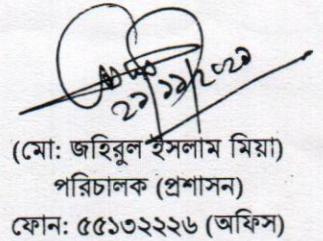 ২১/১১/২০২১
(মো: জহিরুল ইসলাম মিয়া)
পরিচালক (প্রশাসন)
ফোন: ৫৫১৩২২২৬ (অফিস)